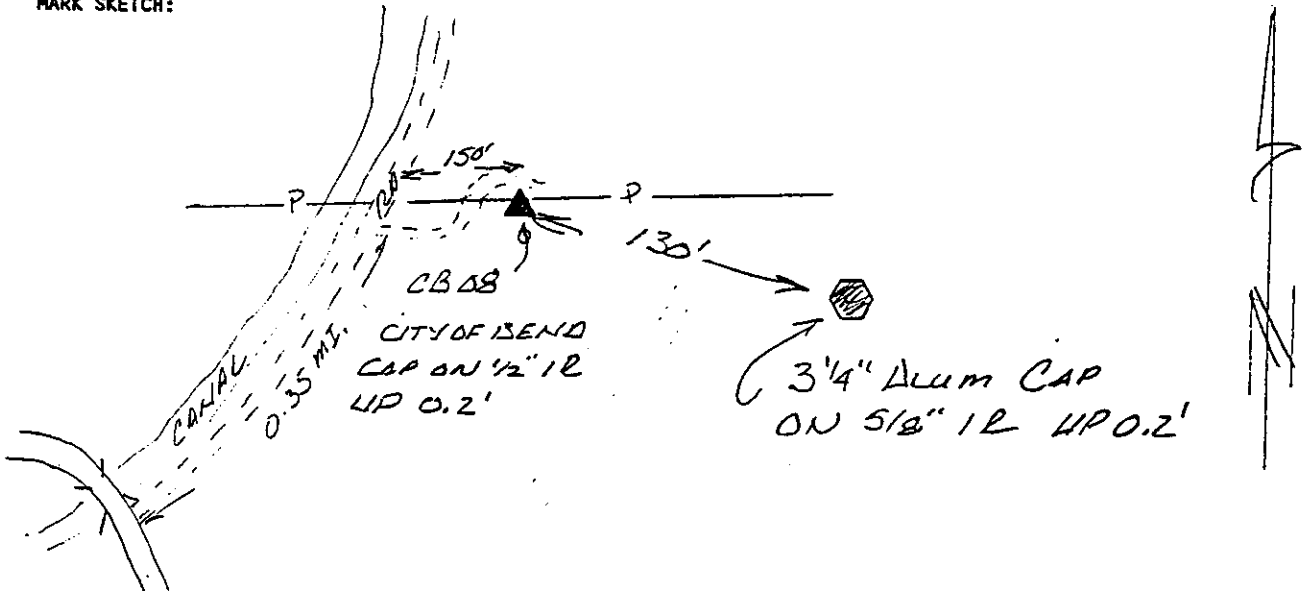 MARK SKETCH:
150'
P
P
RD
130'
CB 08
CITY OF BEND
CAP ON 1/2" IR
UP 0.2'
CANAL
0.35 MI.
3 1/4" ALUM CAP
ON 5/8" IR UP 0.2'
N